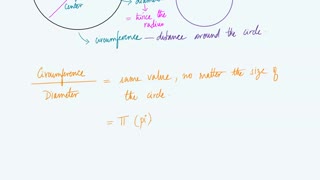 center
= twice the
radius
circumference — distance around the circle.
Circumference
Diameter
= same value, no matter the size of
the circle.
= π (pi)